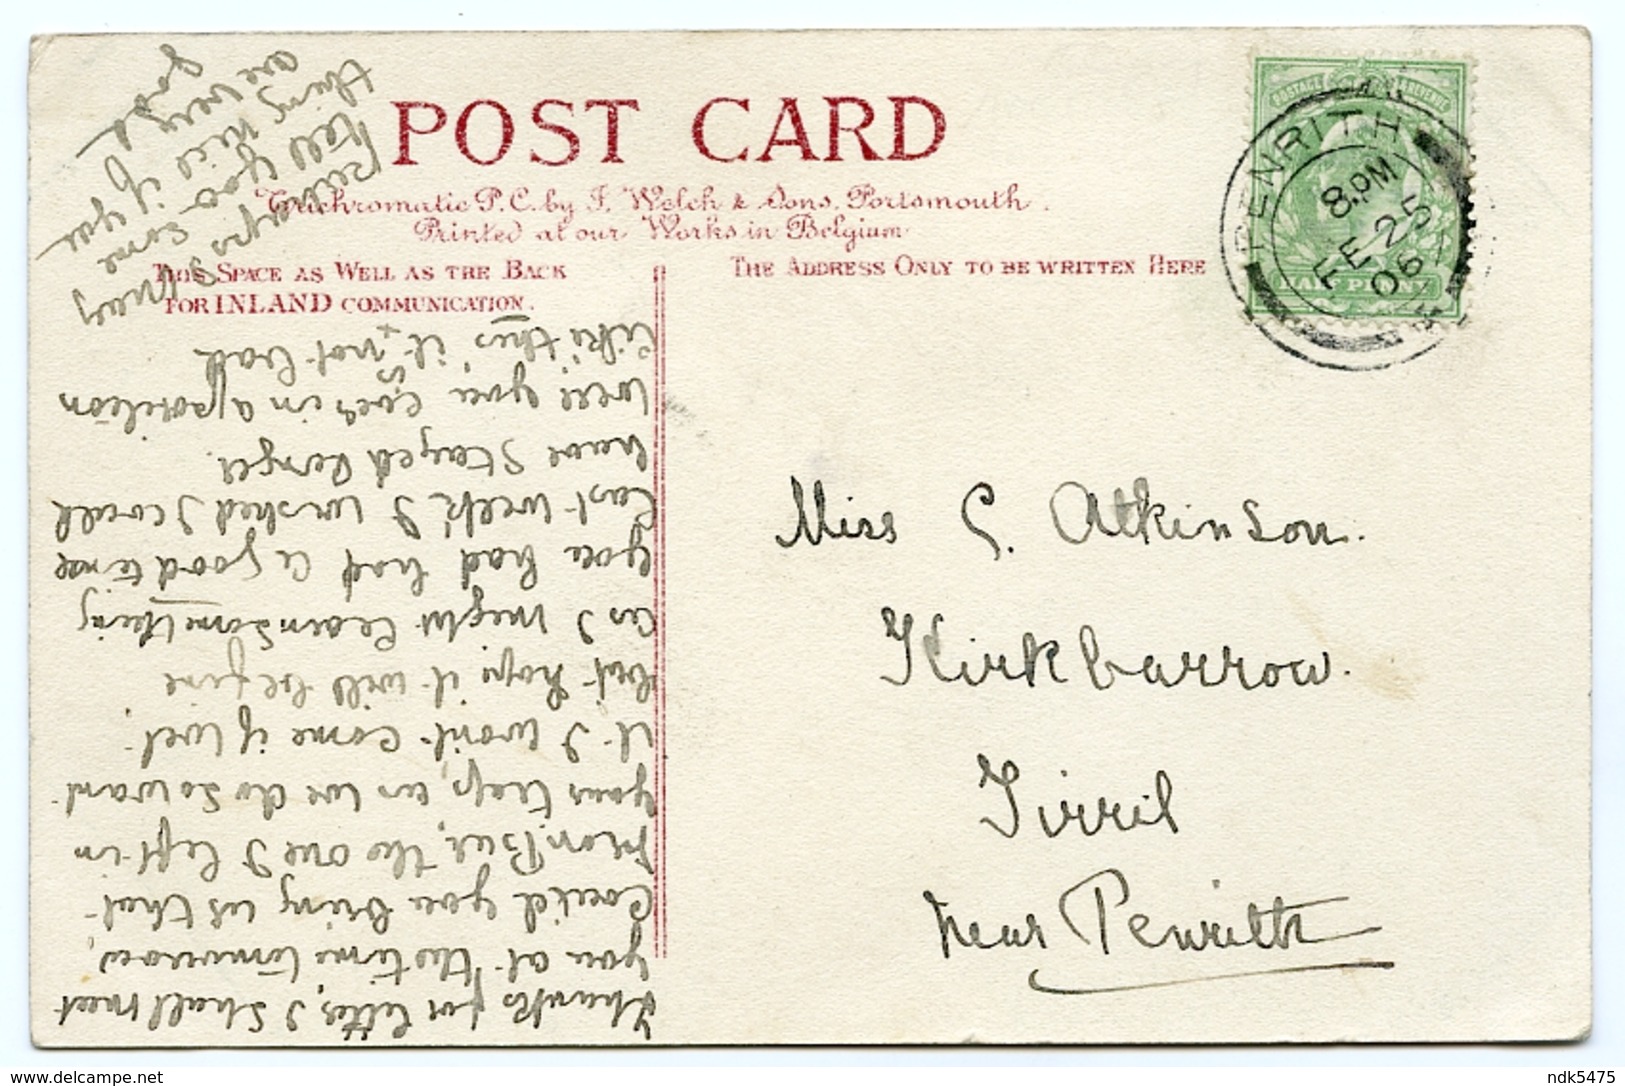 POST CARD
Trichromatic P.C. by F. Welch & Sons, Portsmouth.
Printed at our Works in Belgium
THIS SPACE AS WELL AS THE BACK
FOR INLAND COMMUNICATION.
THE ADDRESS ONLY TO BE WRITTEN HERE
POSTAGE REVENUE
HALF PENNY
PENRITH
8. PM
FE 25
05
Miss G. Atkinson.
Kirkbarrow.
Tirril
near Penrith
Thanks for letter, I shall meet
you at the time tomorrow,
Could you bring us that
the one I left in
your trap, as we do so want
it I won't come if wet.
but hope it will be fine
as I might learn something
you had had a good time
last week, I wished I could
have stayed longer.
well you in a position
like this, it is not bad
Perhaps Some
tell you if you
things
are very
good
ndk5475